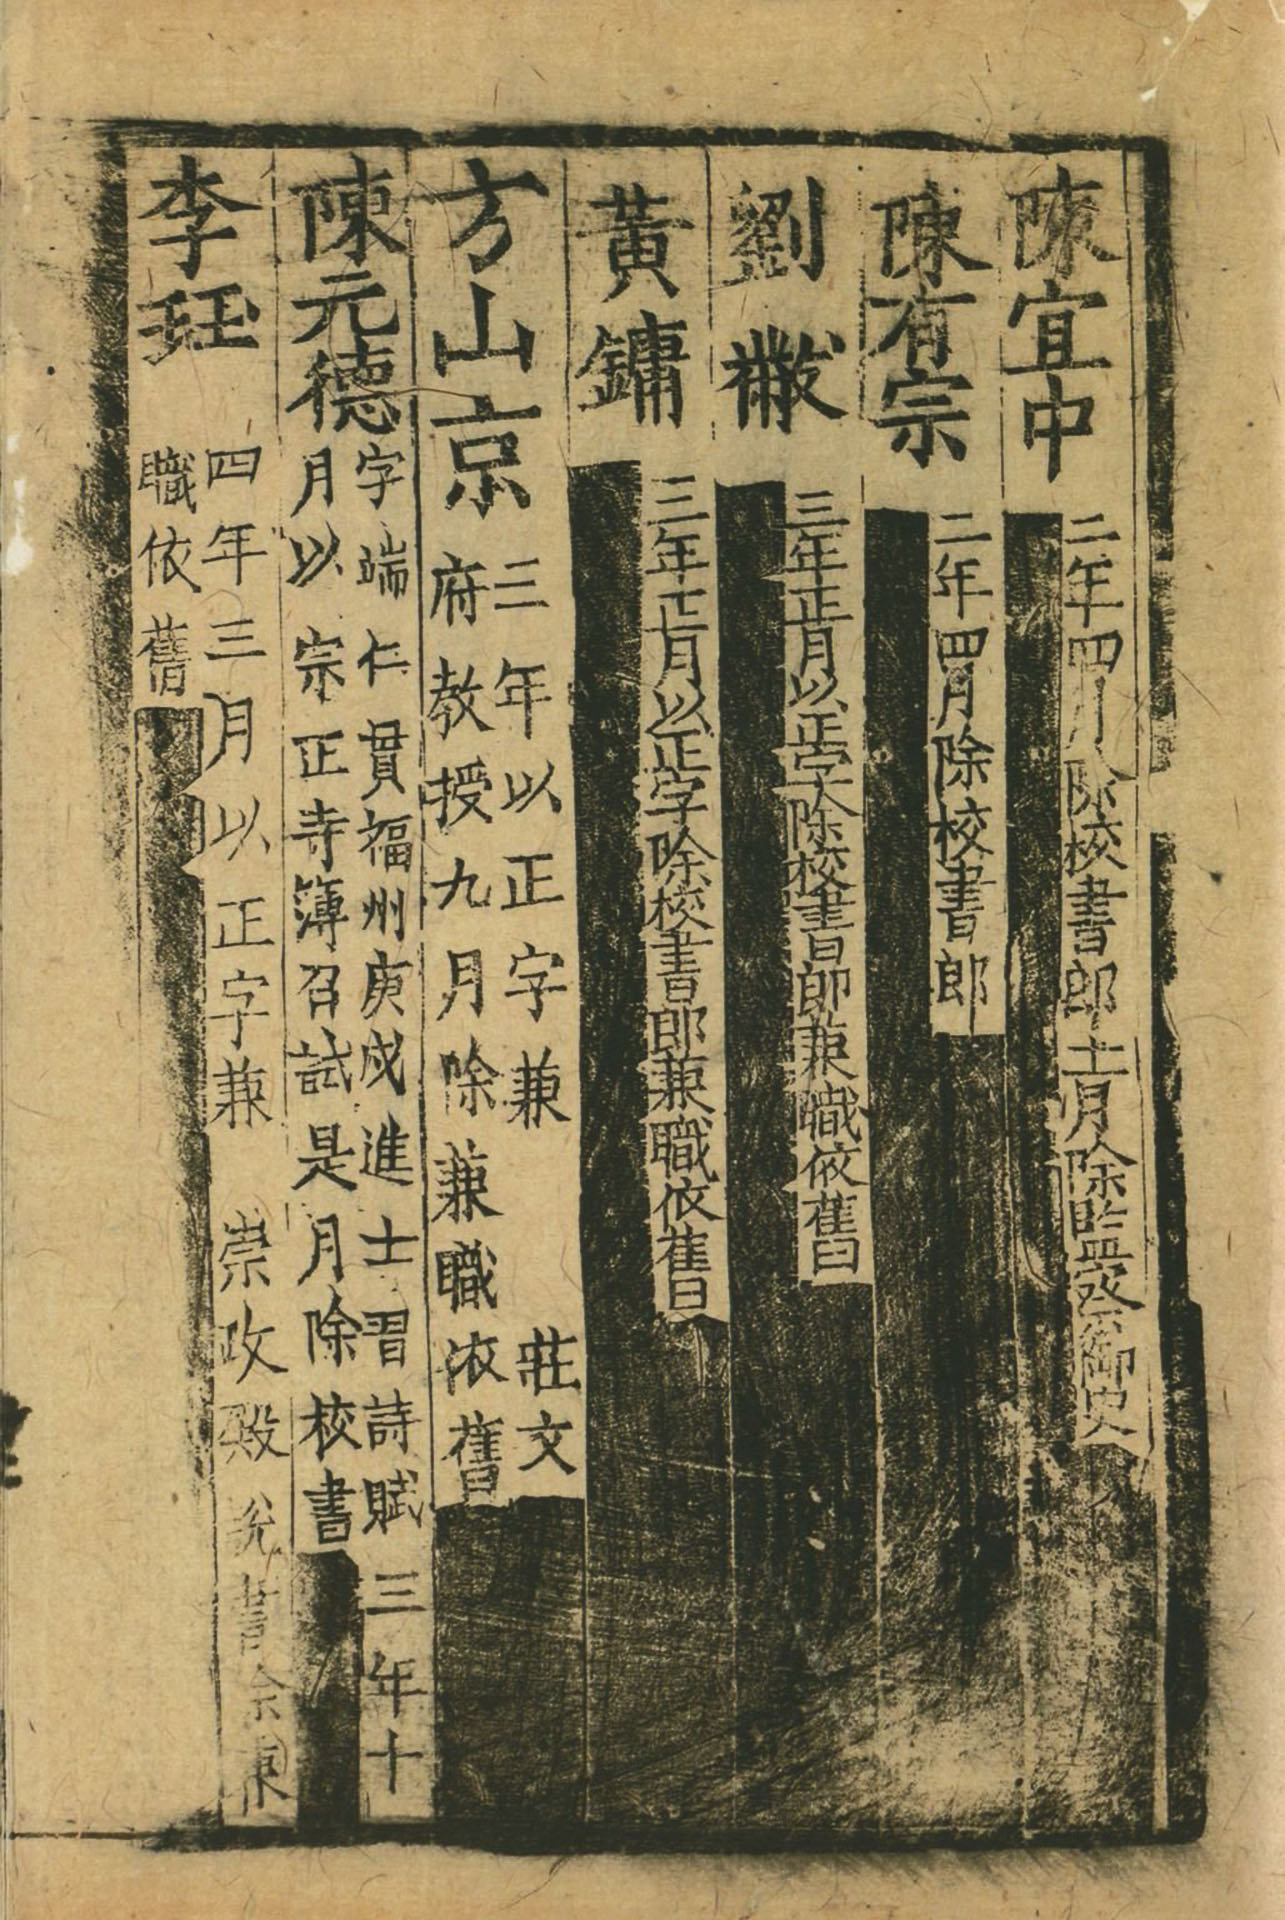 陳宜中 二年四月除校書郎十二月除監察御史
陳有宗 二年四月除校書郎
劉黻 三年正月以正字除校書郎兼職依舊
黃鏞 三年七月以正字除校書郎兼職依舊
方山京 三年以正字兼 莊文
府教授九月除兼職依舊
陳元德 字端仁貫福州庚戌進士習詩賦三年十
月以宗正寺簿召試是月除校書
李珏 四年三月以正字兼 崇政殿說書除兼
職依舊